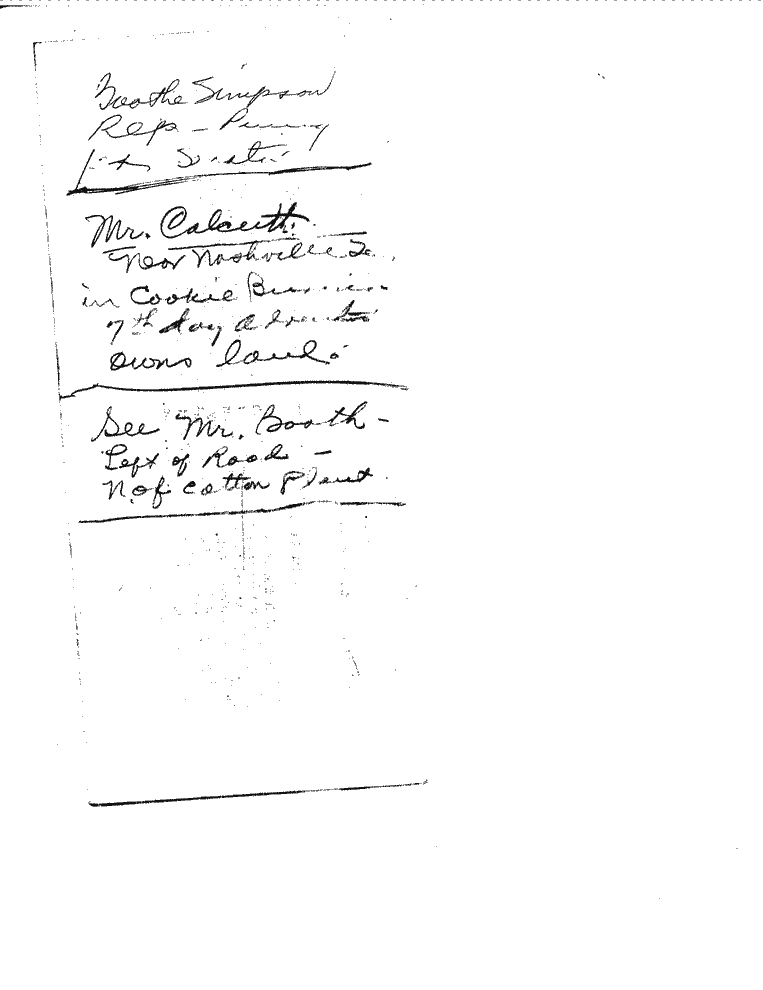 Boothe Simpson
Rep -
Mr. Calcutt
Near Nashville Te
in Cookie Business
7th day Adventist
owns land
See Mr. Booth -
Left of Road -
N. of Cotton Plant